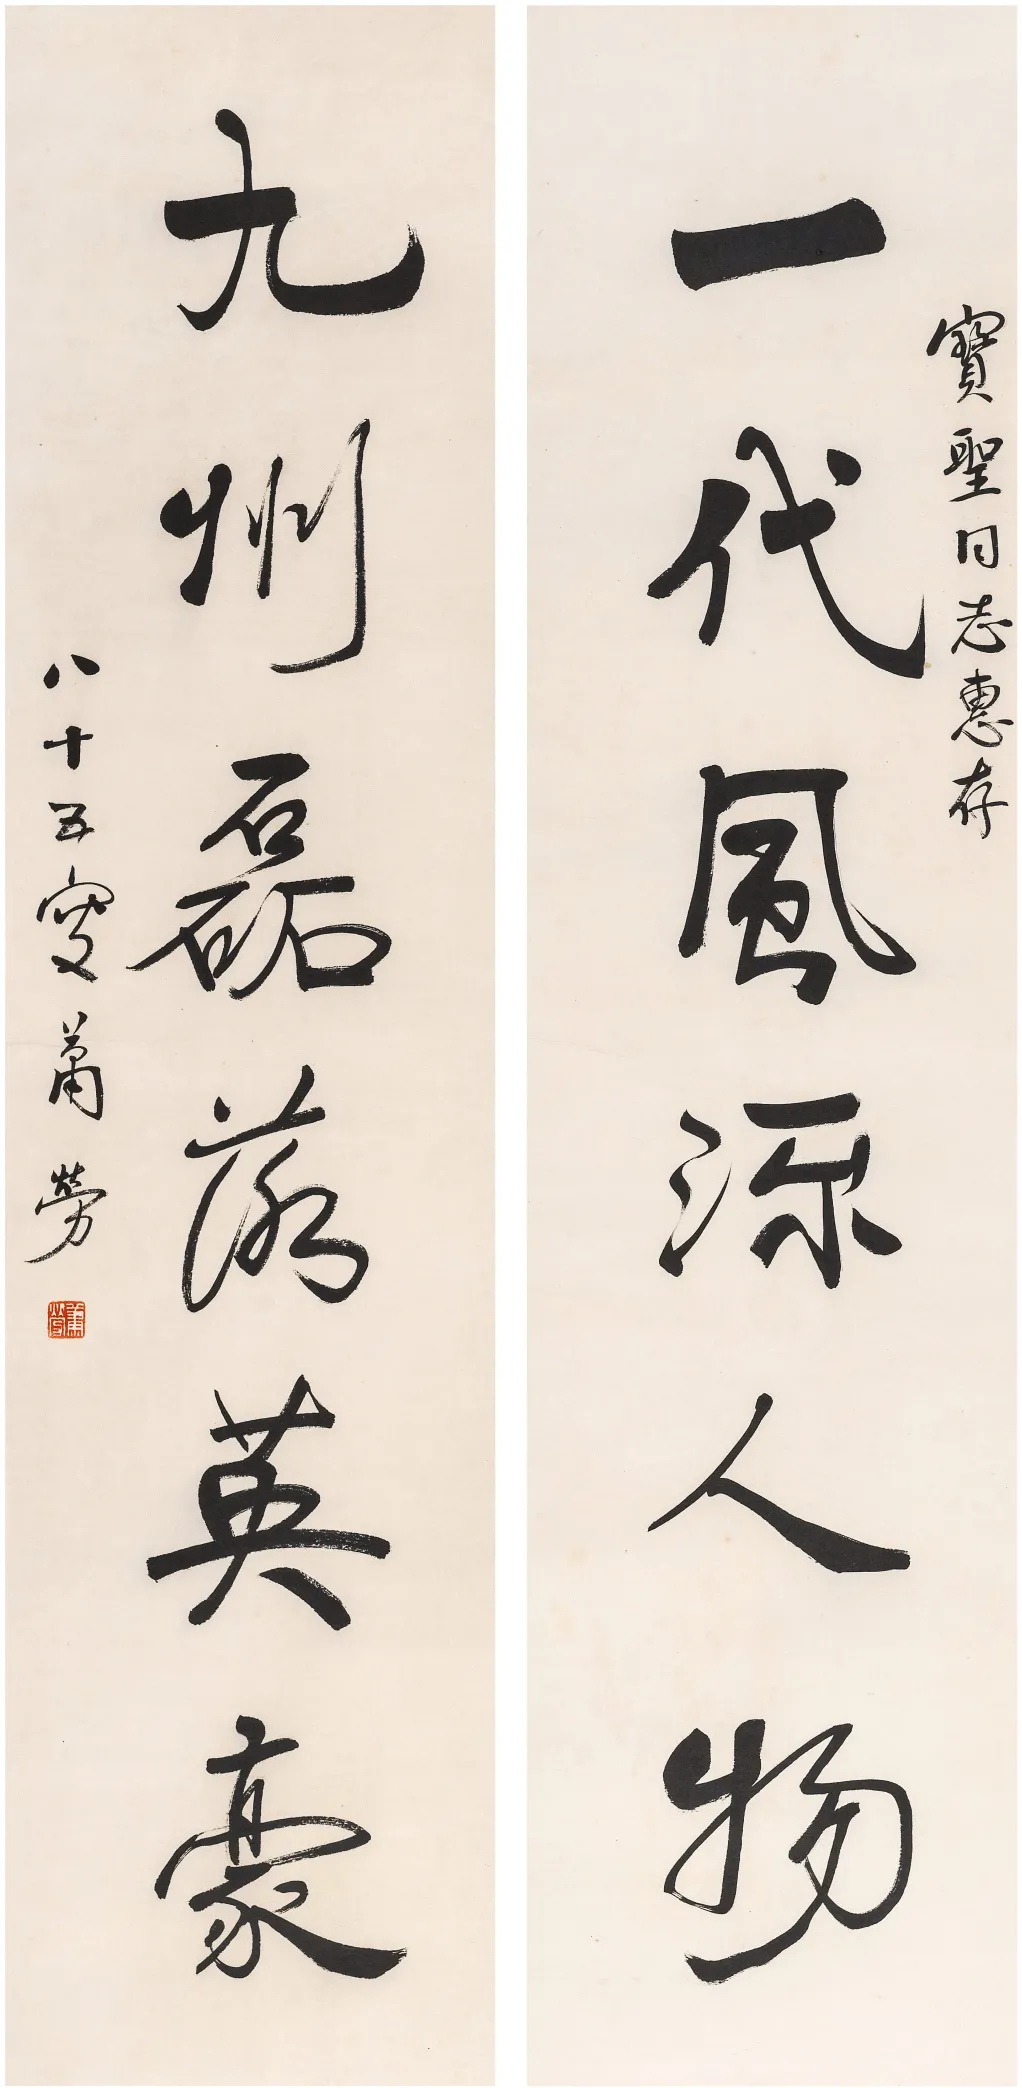 寶聖同志惠存
一代風流人物
九州磊落英豪
八十五叟蕭勞
蕭勞